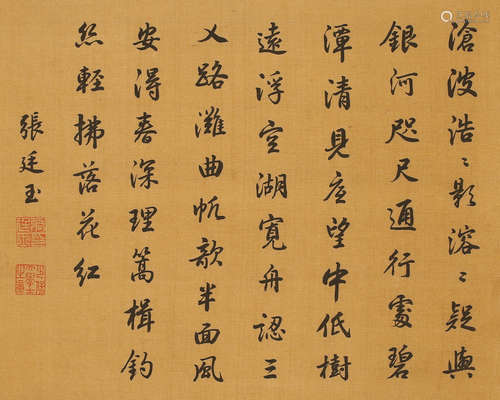 滄波浩〻影溶〻疑與
銀河咫尺通行處碧
潭清見底望中低樹
遠浮空湖寬舟認三
乂路灘曲帆歆半面風
安得春深理篙楫釣
絲輕拂落花紅
張廷玉